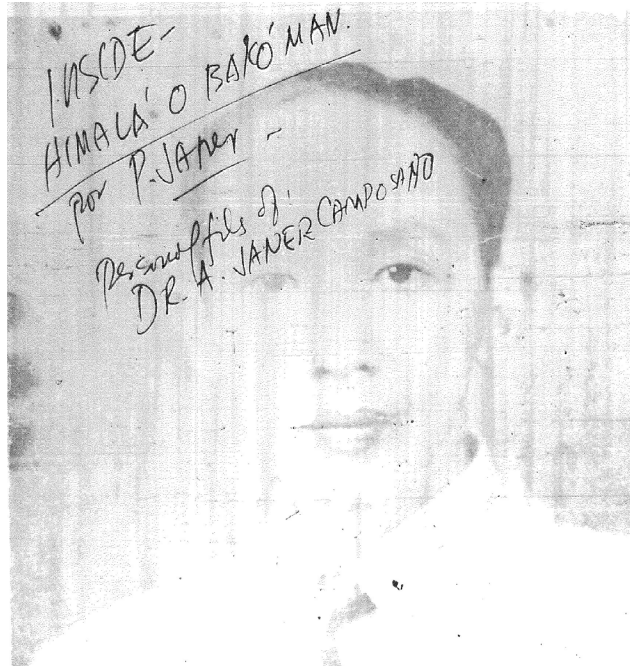 INSIDE-
HIMALÁ O BAKÓ MAN.
por P. JAner -
Personal file of:
DR. A. JANER CAMPOSANO